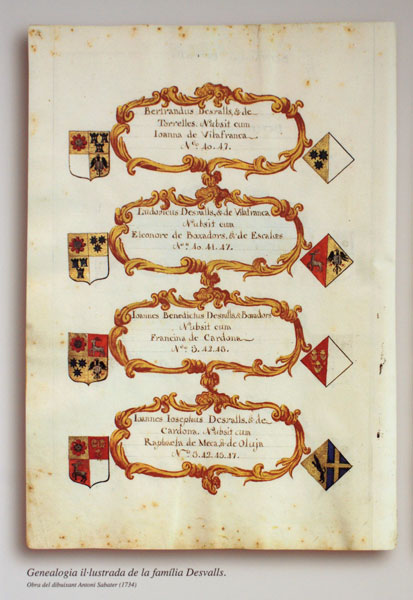 Bertrandus Desvalls, & de
Torrelles. Nubsit cum
Ioanna de Vilafranca
N.º 40. 47.
Ludovicus Desvalls, & de Vilafranca
Nubsit cum
Eleonore de Boxadors, & de Escales
N.º 40. 41. 47.
Ioannes Benedictus Desvalls, & Boxadors
Nubsit cum
Francina de Cardona
N.º 8. 42. 48.
Ioannes Iosephus Desvalls, & de
Cardona. Nubsit cum
Raphaela de Meca, & de Oluja
Genealogia il·lustrada de la família Desvalls.
Obra del dibuixant Antoni Sabater (1734)